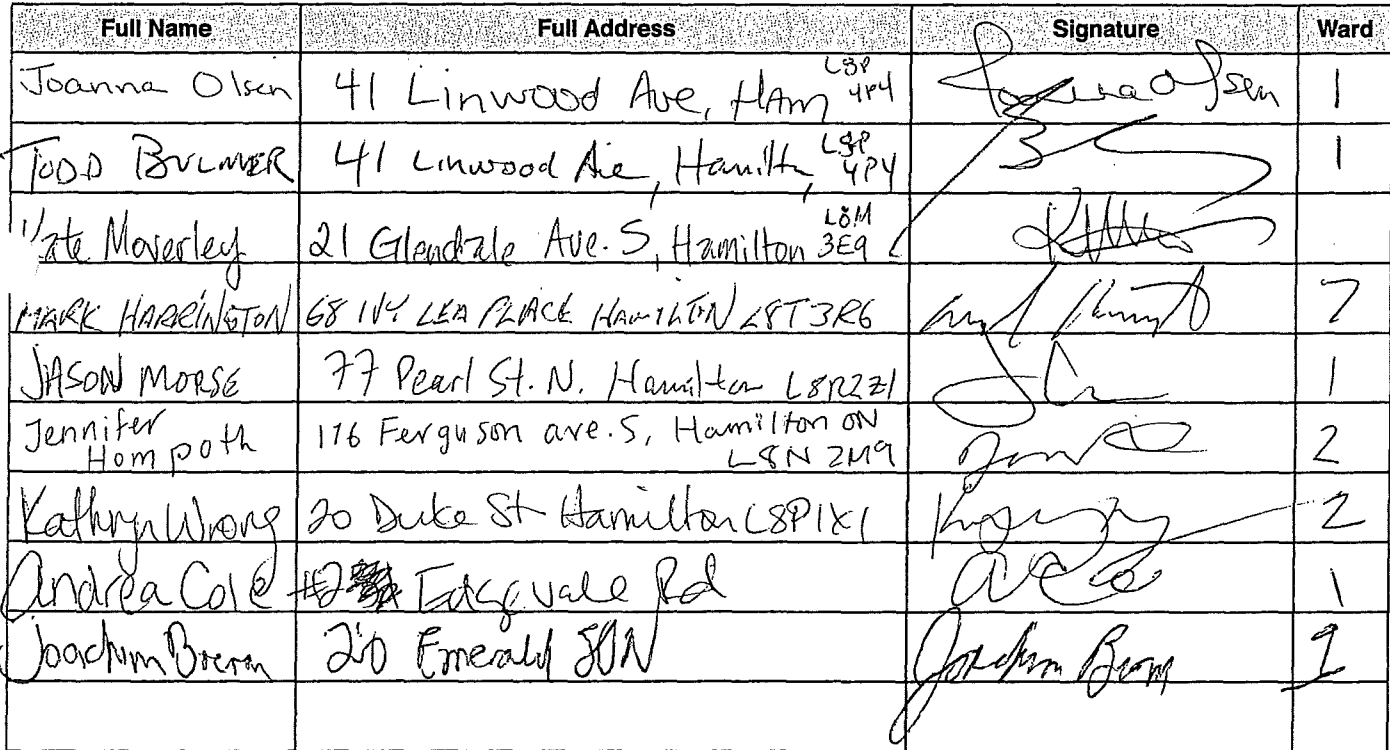 Full Name Full Address Signature Ward
Joanna Olsen 41 Linwood Ave, HAm L8P 4P4 Joanna Olsen 1
TODD BULMER 41 Linwood Ave, Hamilton, L8P 4P4 1
Kate Moverley 21 Glendale Ave. S, Hamilton L8M 3E9
MARK HARRINGTON 68 IVY LEA PLACE HAMILTON L8T3R6 7
JASON MORSE 77 Pearl St. N. Hamilton L8R2Z1 1
Jennifer Hompoth 176 Ferguson ave. S, Hamilton ON L8N 2M9 2
Kathryn Wrong 20 Duke St Hamilton L8P1X1 2
Andrea Cole #2 Edgevale Rd 1
Joachim 20 Emerald Joachim 1